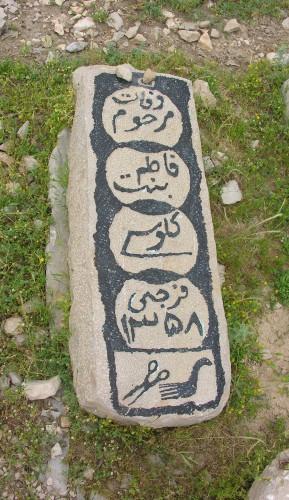 وفات
مرحوم
فاطمه
بنت
کلوس
فرجی
۱۳۵۸